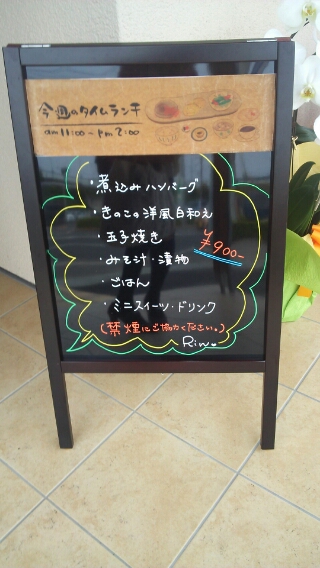 今週のタイムランチ
am11:00-pm2:00
・煮込みハンバーグ
・きのこの洋風白和え
・玉子焼き
¥900-
・みそ汁・漬物
・ごはん
・ミニスイーツ・ドリンク
(禁煙にご協力ください。)
Rin。